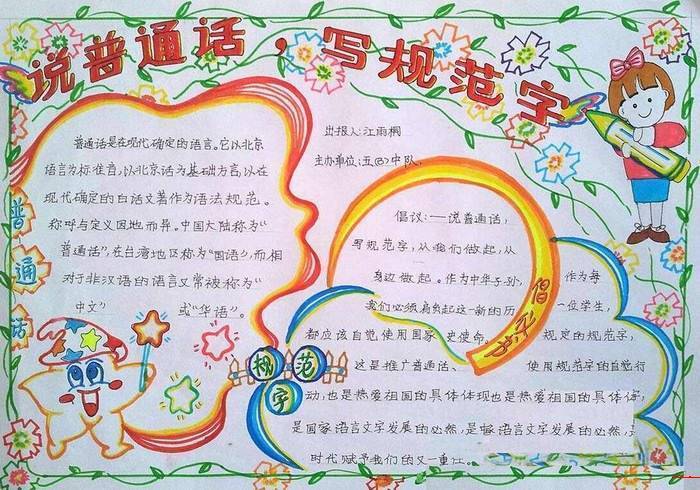 说普通话，写规范字
普通话是在现代确定的语言。它以北京
语言为标准音，以北京话为基础方言，以在
现代确定的白话文著作为语法规范。
称呼与定义因地而异。中国大陆称为“
普通话”，在台湾地区称为“国语”，而相
对于非汉语的语言又常被称为“
中文” 或“华语”。
普通话
出报人：江雨桐
主办单位：五（8）中队
倡议：——说普通话，
写规范字，从我们做起，从
身边做起。作为中华子孙， 作为每
我们必须肩负起这一新的历 一位学生，
都应该自觉使用国家 史使命。 规定的规范字，
这是推广普通话、 使用规范字的自觉行
动，也是热爱祖国的具体体现也是热爱祖国的具体体
是国家语言文字发展的必然，是
语言文字发展的必然，
时代赋予我们的又一重任。
规范字
倡